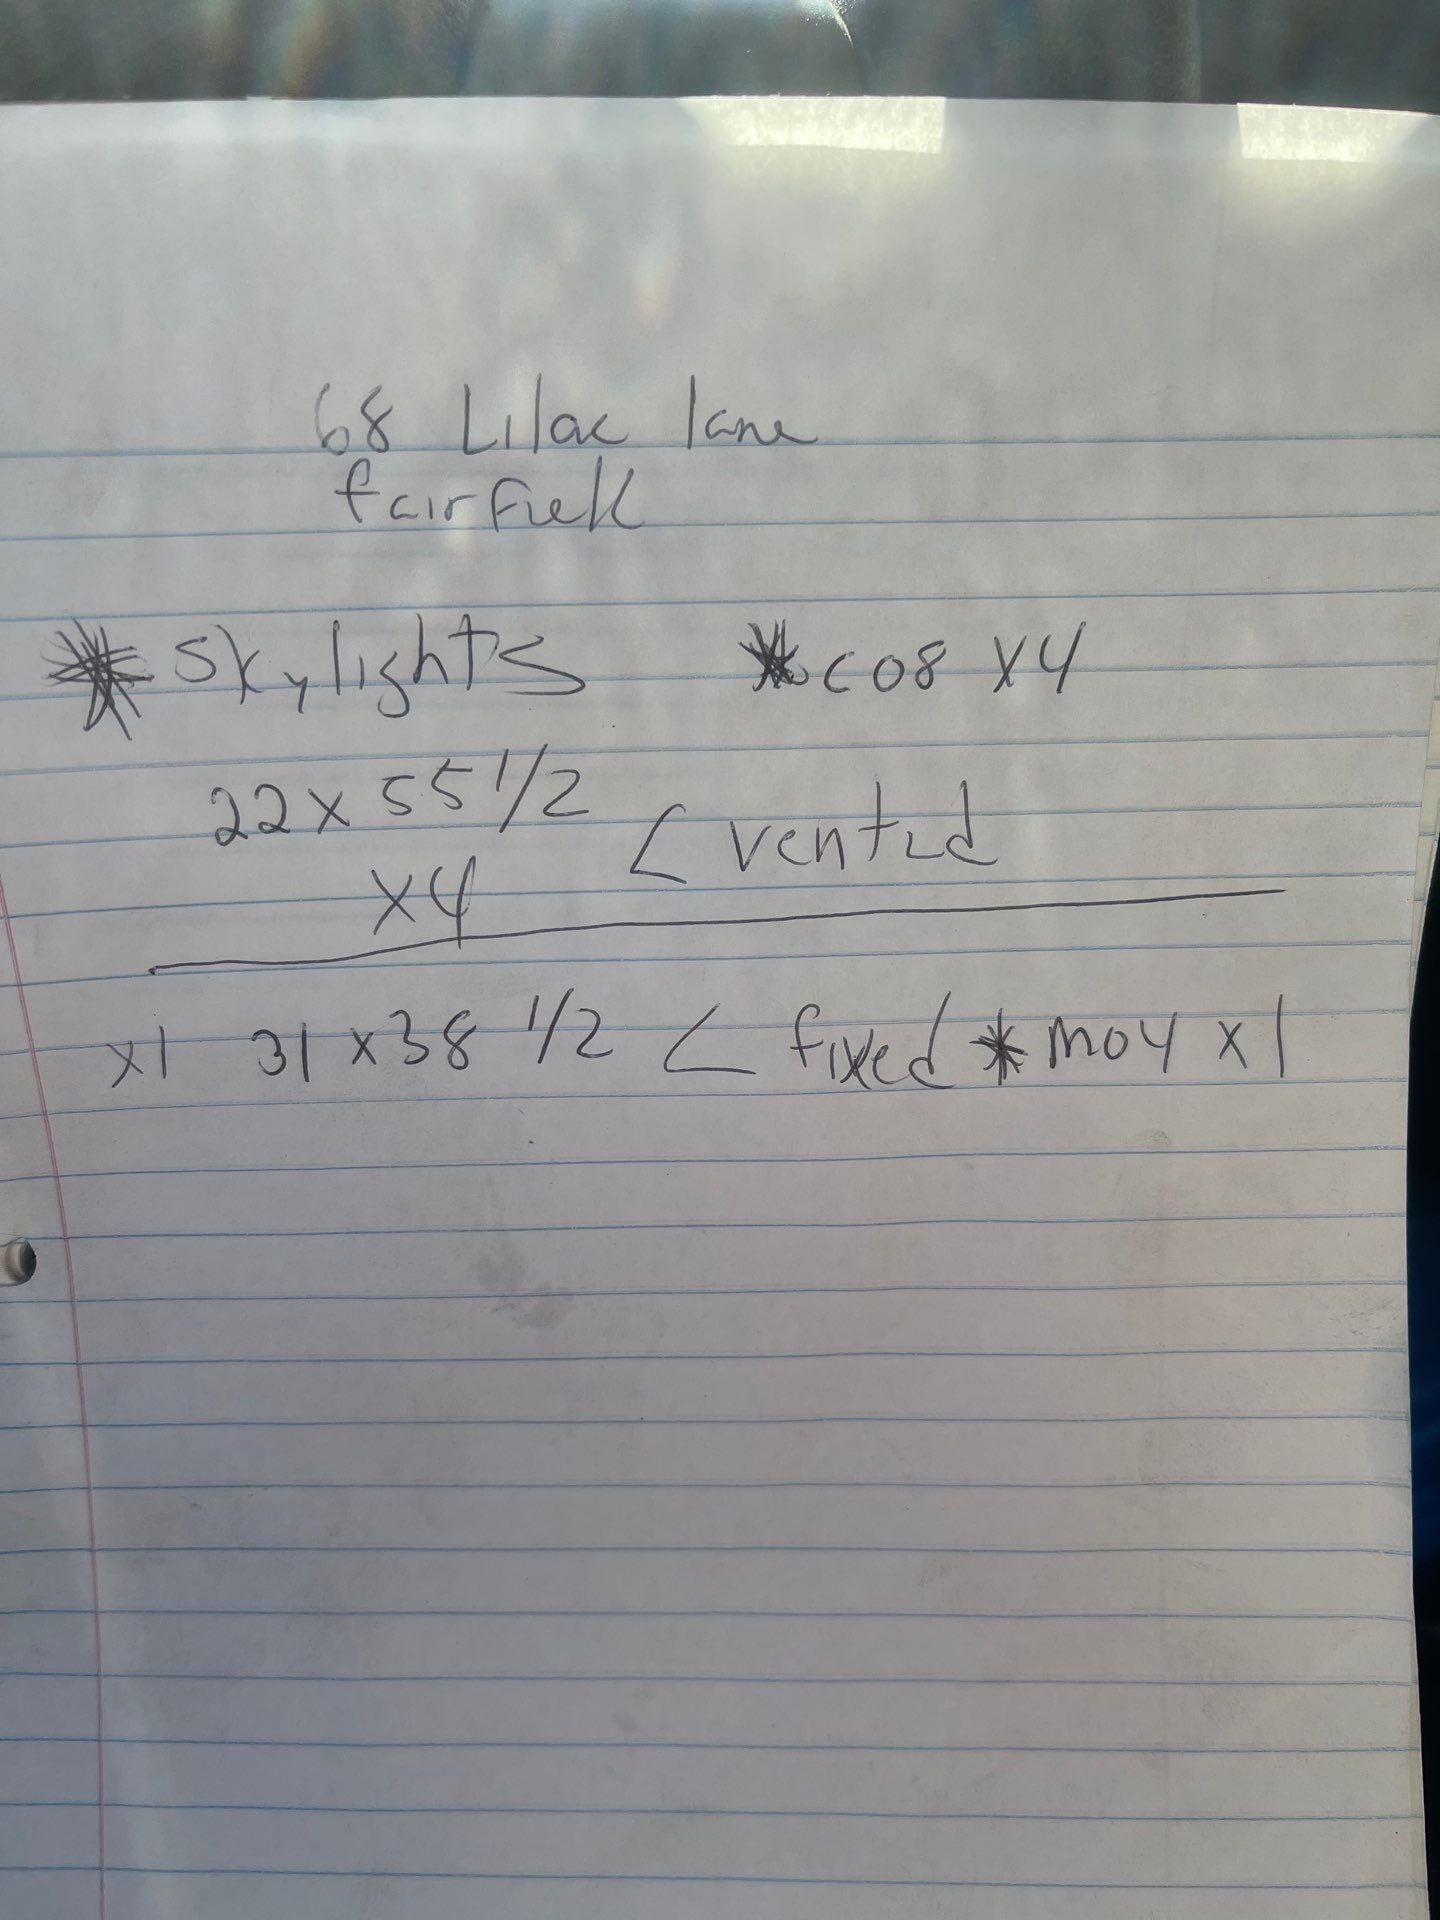 68 Lilac lane
fairfield
* skylights * co8 x4
22 x 55 1/2
< vented
x4
x1 31 x 38 1/2 < fixed * mo4 x 1